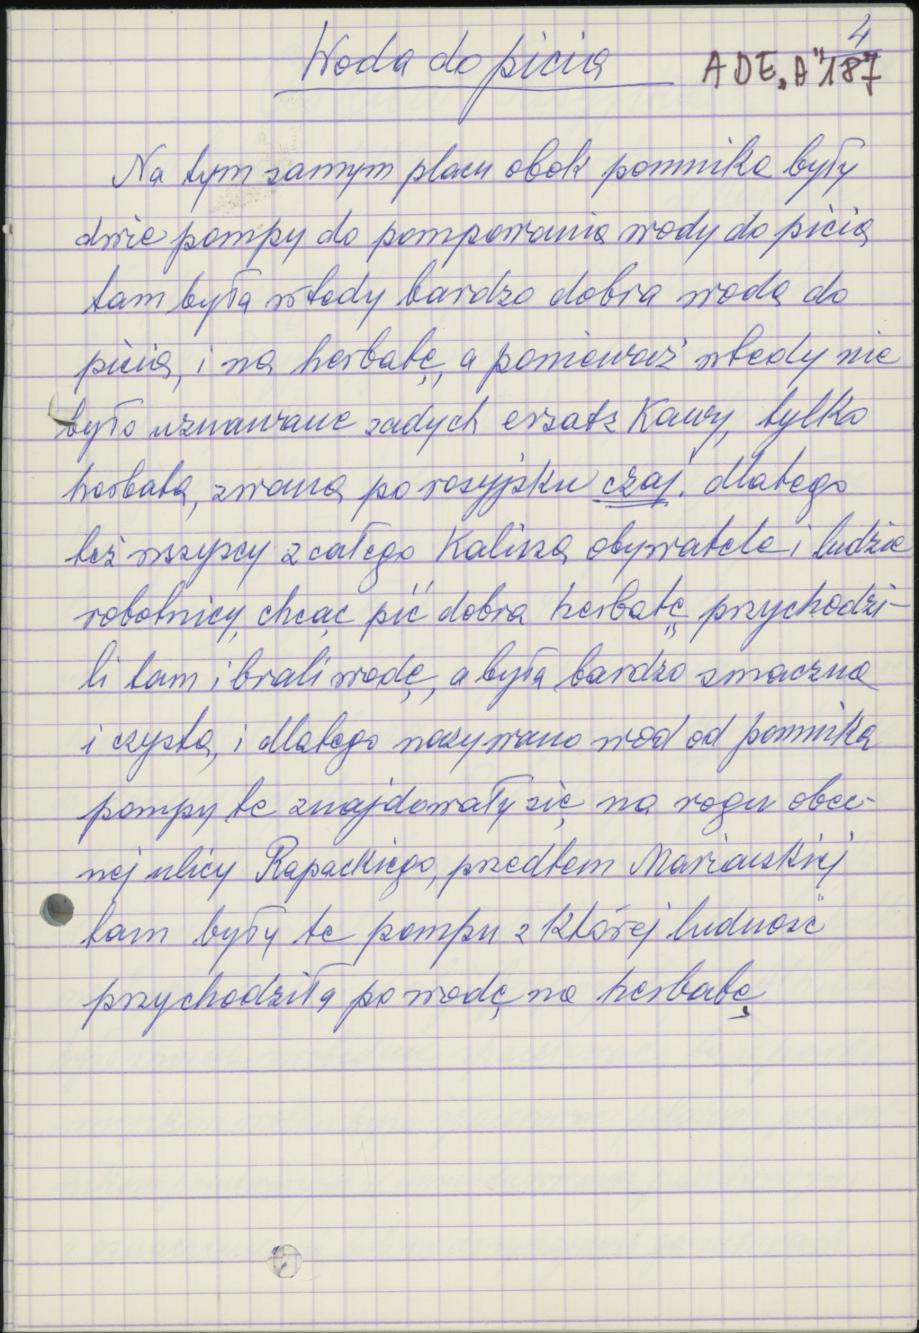 4
Woda do picia
ADE„A"187
Na tym samym placu obok pomnika były
dwie pompy do pompowania wody do picia
tam była wtedy bardzo dobra woda do
picia, i na herbatę, a ponieważ wtedy nie
było uznawane żadych ersatz Kawy, tylko
herbata, zwana po rosyjsku czaj. dlatego
też wszyscy z całego Kalisza obywatele i ludzie
robotnicy, chcąc pić dobra herbatę przychodzi-
li tam i brali wodę, a była bardzo smaczna
i czysta, i dlatego nazywano wod od pomnika
pompy te znajdowały się na rogu obec-
nej ulicy Rapackiego, przedtem Mariańskiej
tam były te pompu z Której ludność
przychodziła po wodę na herbatę